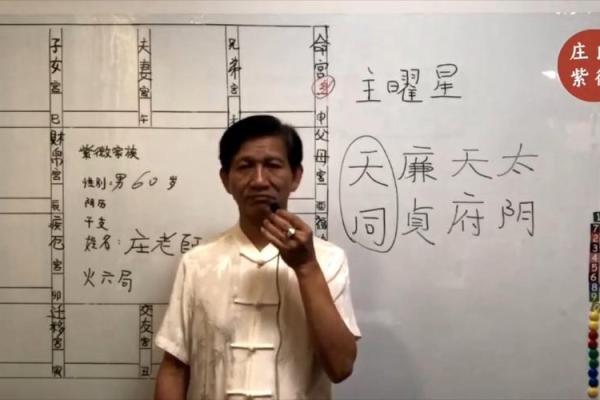 子女宮 巳
夫妻宮 午
兄弟宮
命宮 申
父母宮 酉
財帛宮 辰
疾厄宮 卯
迁移宮 寅
交友宮 丑
紫微家族
性别:男60岁
阴历
干支
姓名:庄老師
火六局
主曜星
天同
廉貞
天府
太阴
庄
紫微